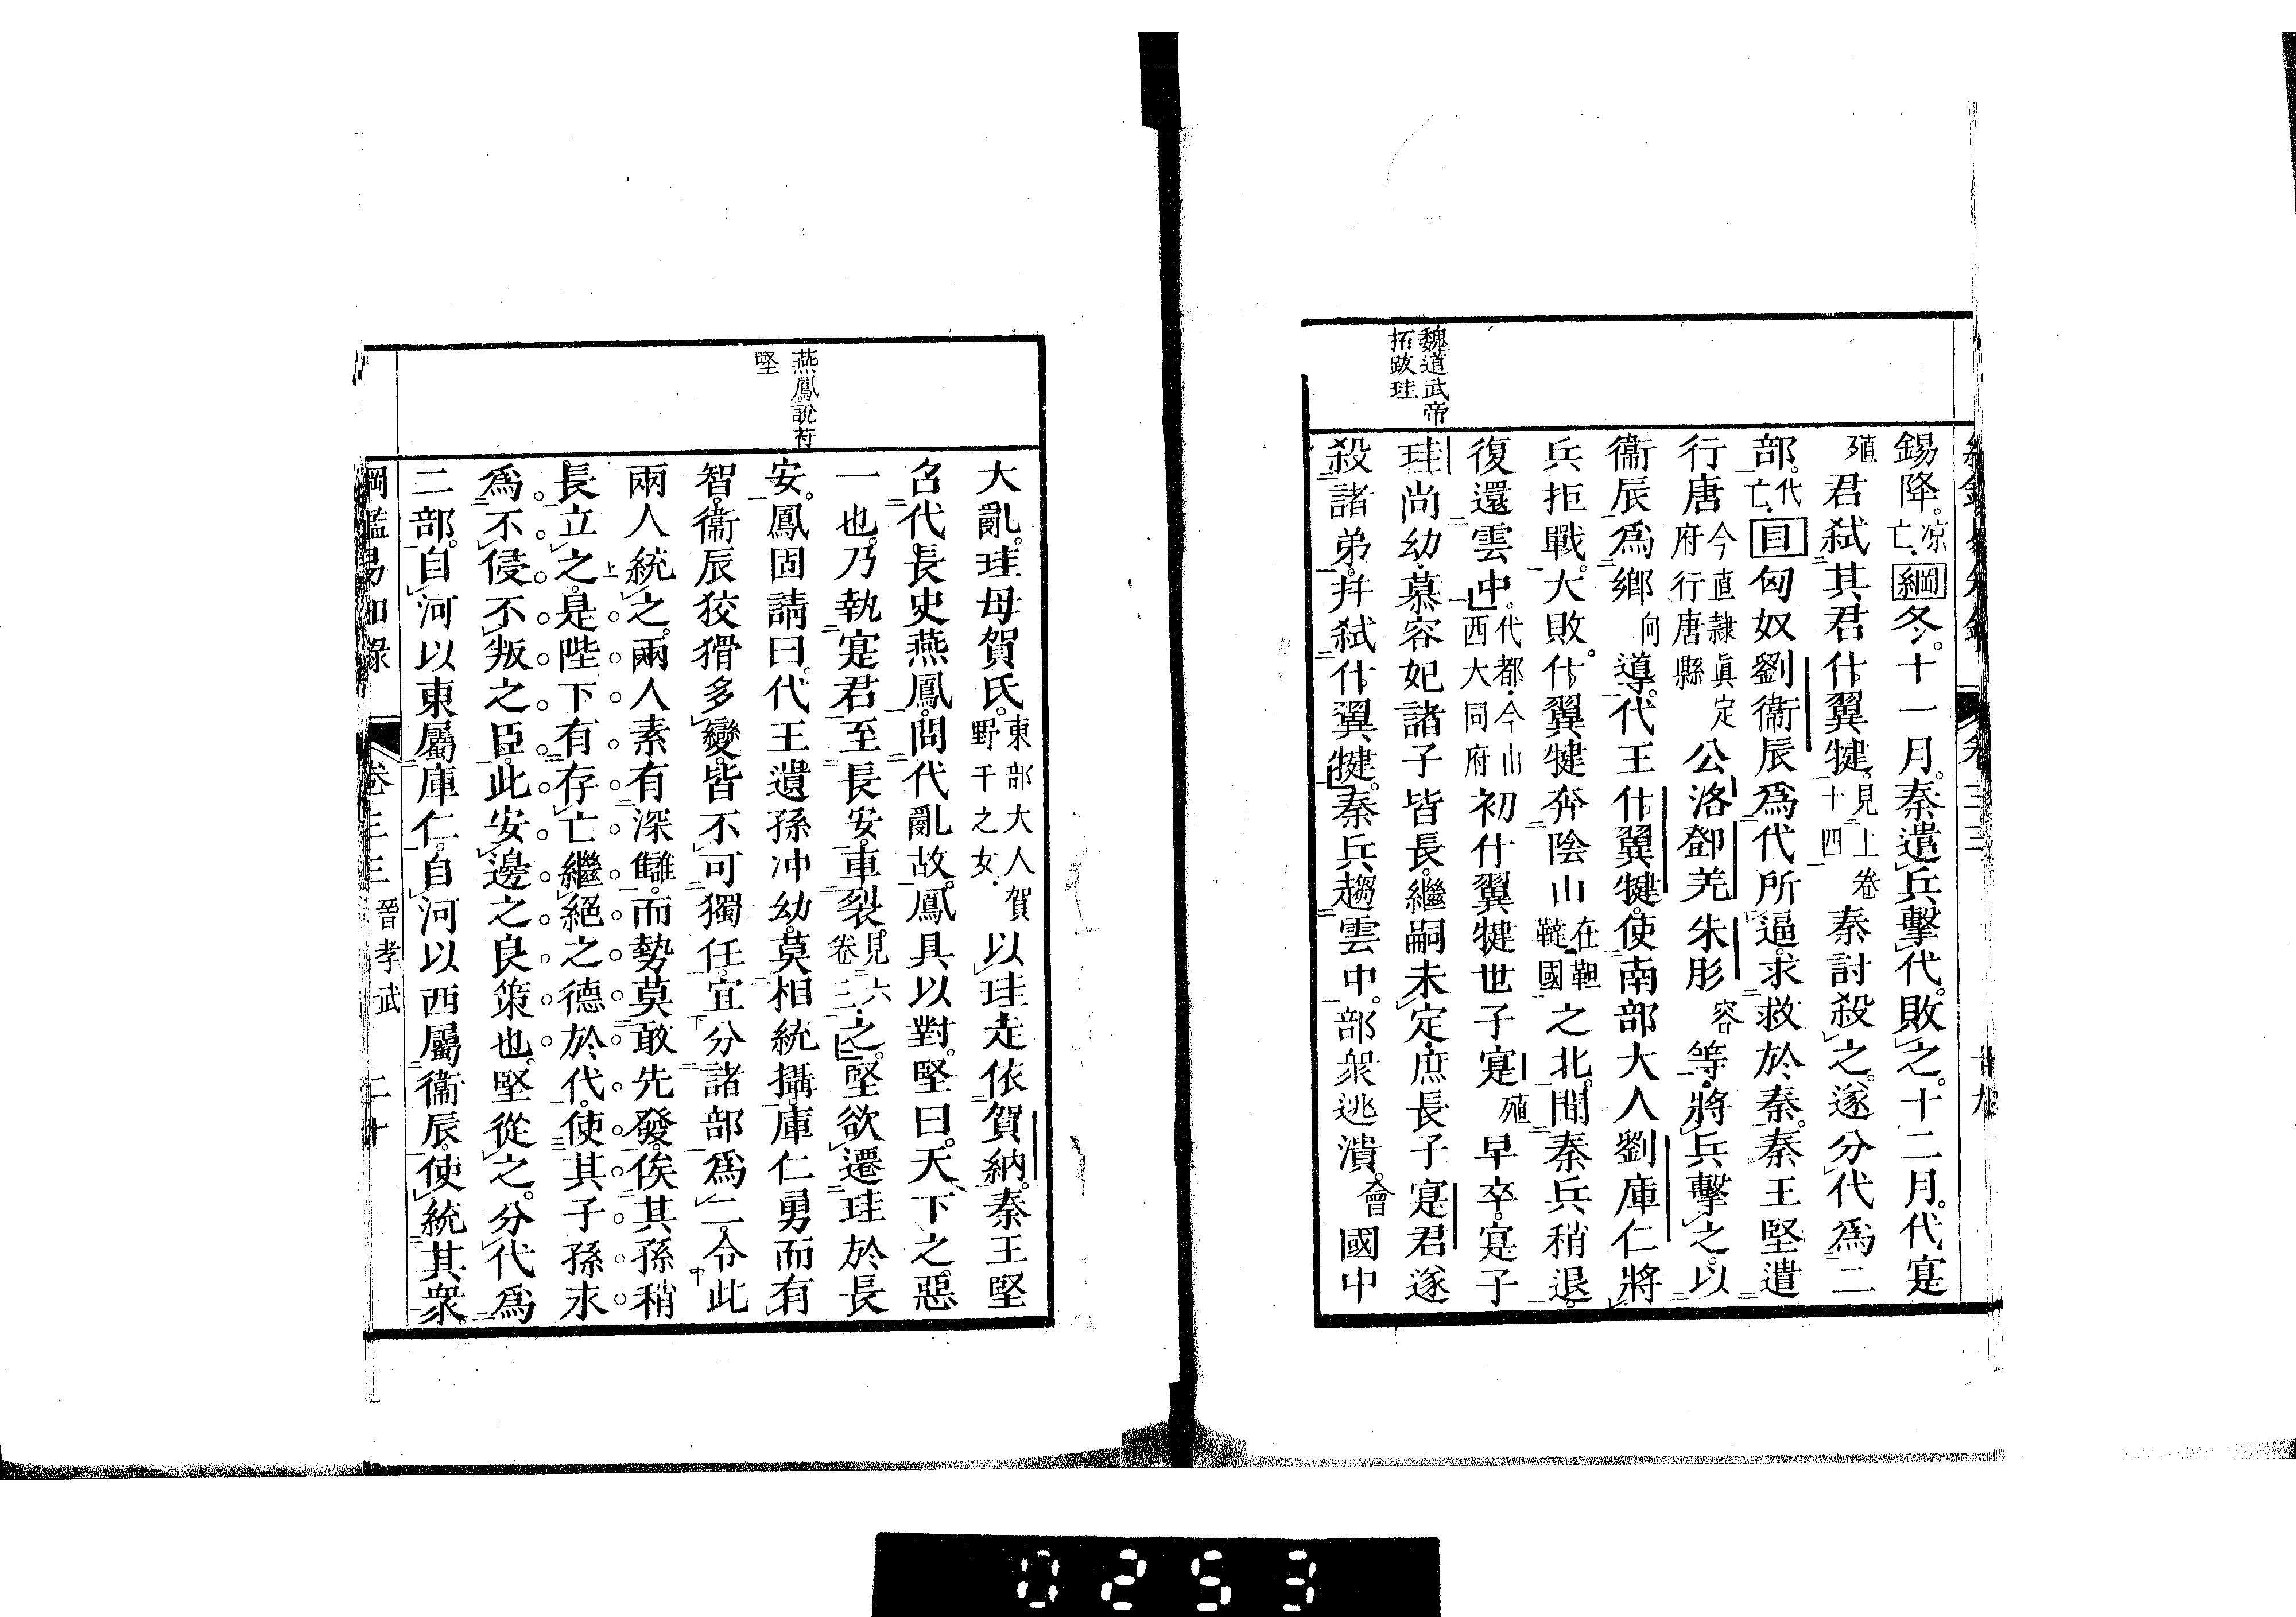 魏道武帝
拓跋珪
錫降。涼亡。綱冬。十一月。秦遣兵擊代。敗之。十二月。代寔
殖君弑其君什翼犍。見上卷十四秦討殺之。遂分代爲二
部。代亡。目匈奴劉衞辰爲代所逼。求救於秦。秦王堅遣
行唐今直隷眞定府行唐縣公洛鄧羌朱肜容等。將兵擊之。以
衞辰爲鄉向導。代王什翼犍。使南部大人劉庫仁將
兵拒戰。大敗。什翼犍奔陰山在靼韃國之北。聞秦兵稍退。
復還雲中。代都。今山西大同府初什翼犍世子寔殖早卒。寔子
珪尚幼。慕容妃諸子皆長。繼嗣未定。庶長子寔君遂
殺諸弟。幷弑什翼犍。秦兵趨雲中。部衆逃潰。會國中
卷三三
十九
燕鳳說苻
堅
大亂。珪母賀氏。東部大人賀野干之女。以珪走依賀納。秦王堅
召代長史燕鳳。問代亂故。鳳具以對。堅曰。天下之惡
一也。乃執寔君至長安。車裂見六卷三。之。堅欲遷珪於長
安。鳳固請曰。代王遺孫冲幼。莫相統攝。庫仁勇而有
智。衞辰狡猾多變。皆不可獨任。宜分諸部爲二。令此
兩人統之。兩人素有深讎。而勢莫敢先發。俟其孫稍
長立之。是陛下有存亡繼絕之德於代。使其子孫永
爲不侵不叛之臣。此安邊之良策也。堅從之。分代爲
二部。自河以東屬庫仁。自河以西屬衞辰。使統其衆。
綱鑑易知錄 卷三三 晉孝武 二十
0253